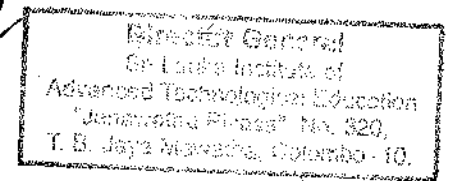 Director General
Sri Lanka Institute of
Advanced Technological Education
No. 320,
T. B. Jaya Mawatha, Colombo - 10.